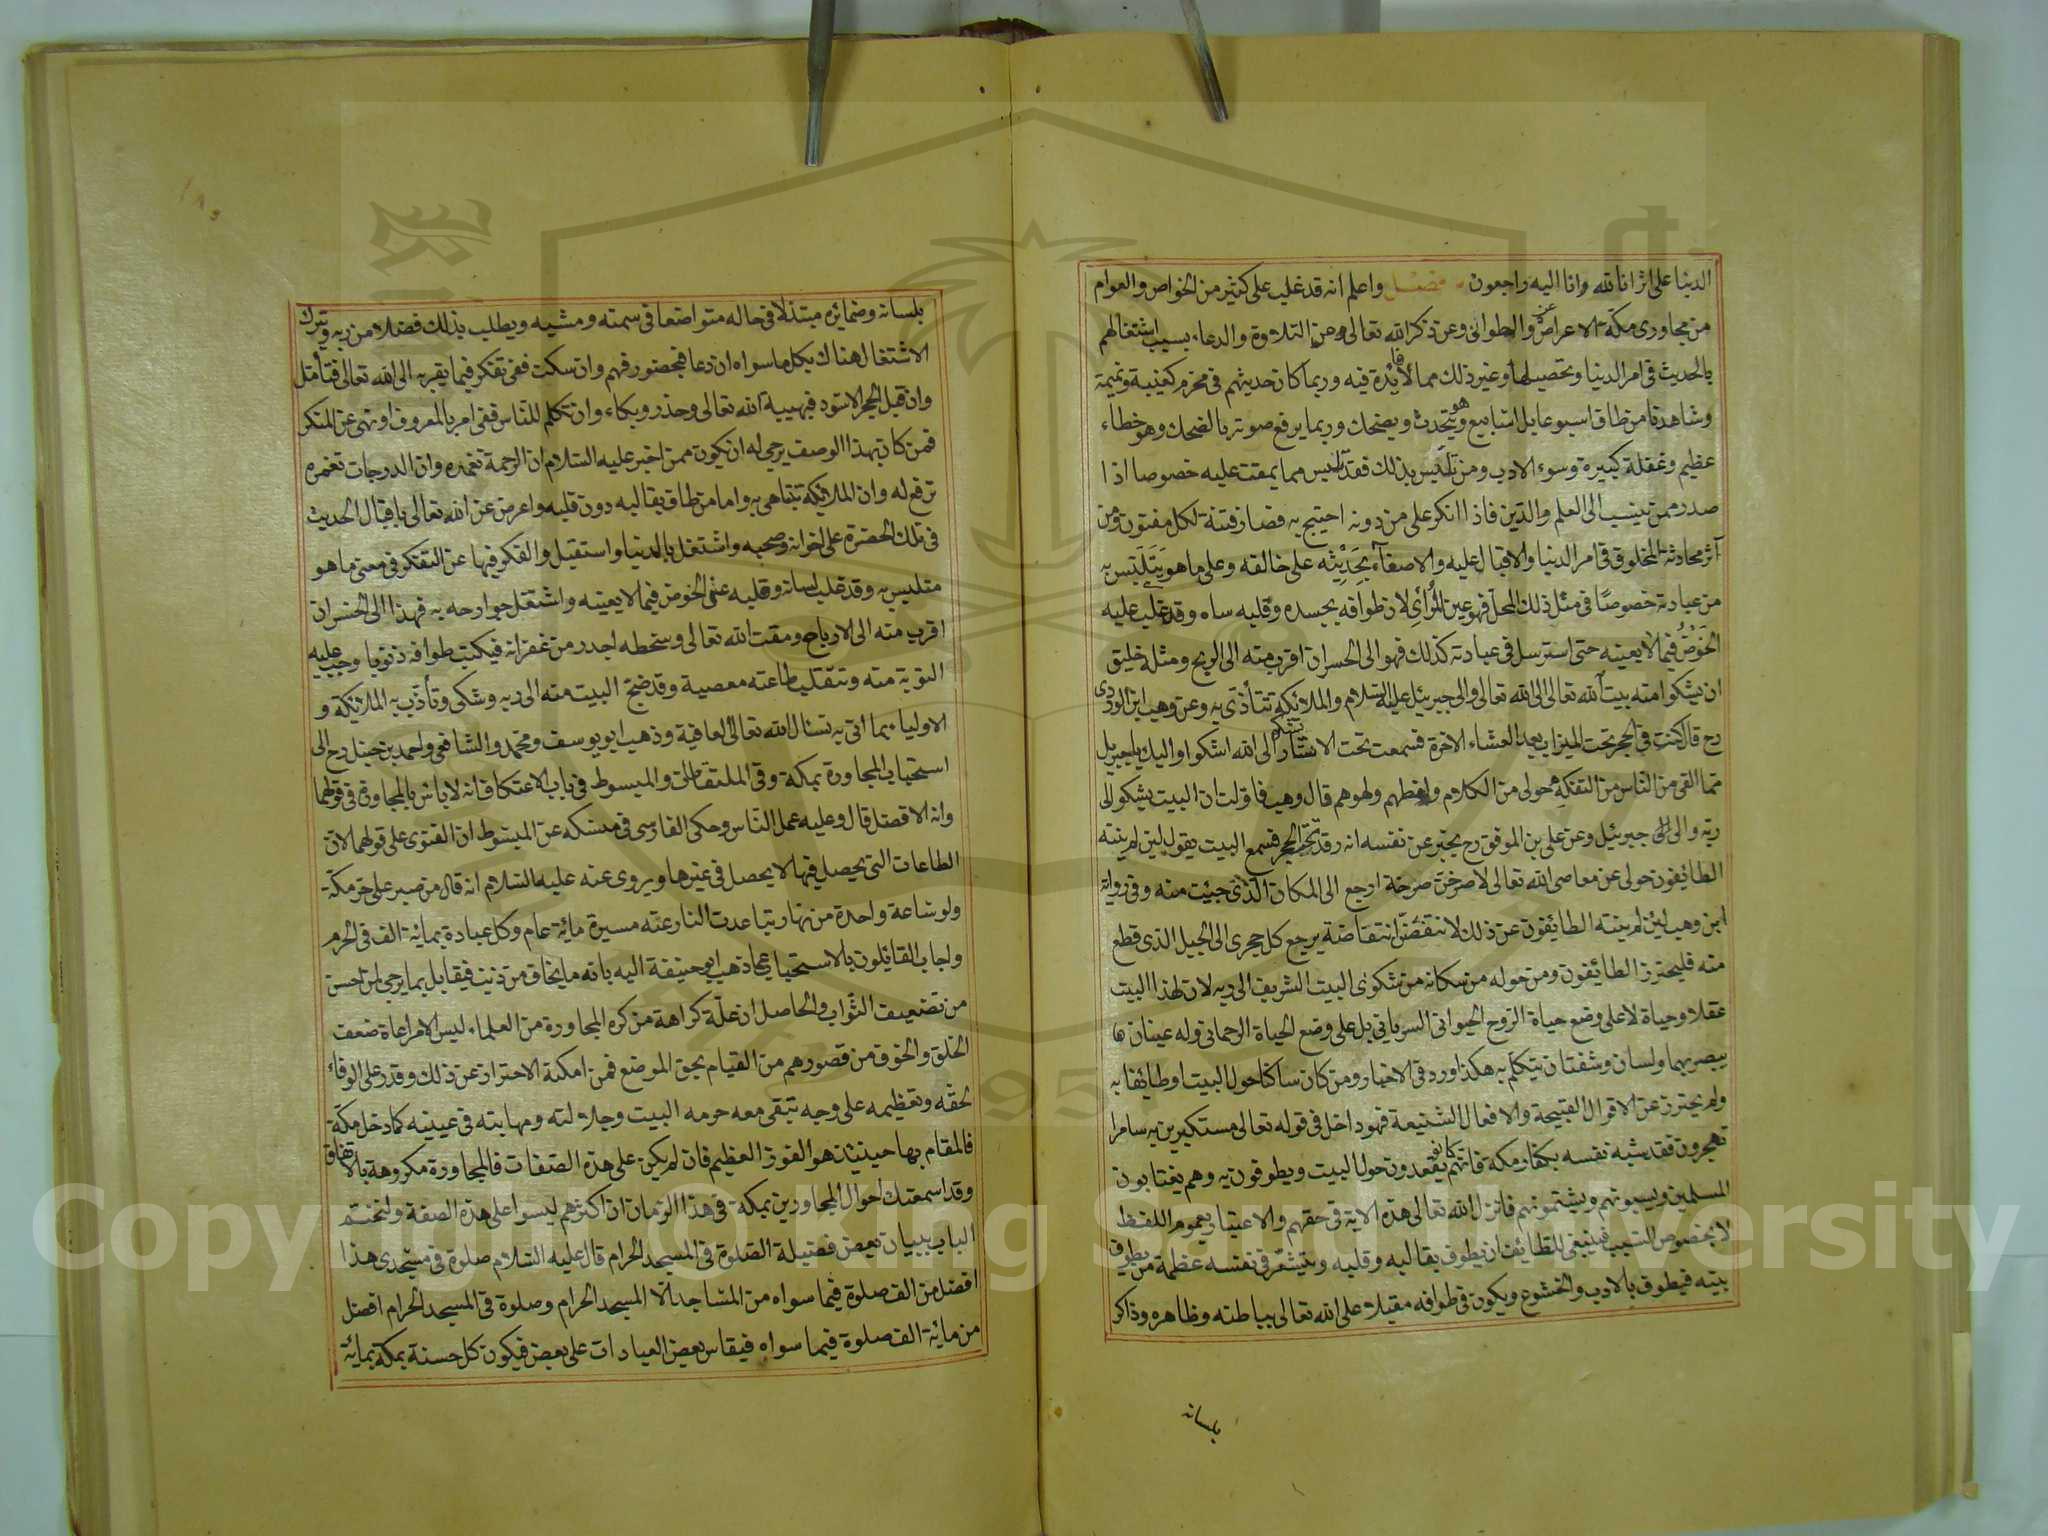 الدنيا على اثر انا لله وانا اليه راجعون فصل واعلم انه قد غلب على كثير من الخواص والعوام
من مجاورى مكة الاعراض عن الطواف وعن ذكر الله تعالى وعن التلاوة والدعاء بسبب اشتغالهم
بالحديث فى امر الدنيا وتحصيلها وغير ذلك مما لا فائدة فيه وربما كان حديثهم فى محرم كغيبة ونميمة
وشاهدنا من طاف اسبوعا بل اسابيع وهو يتحدث ويضحك وربما يرفع صوته بالضحك وهو خطاء
عظيم وغفلة كبيرة وسوء الادب ومن تلبس بذلك فقد تلبس مما يمقت عليه خصوصا اذا
صدر ممن ينسب الى العلم والدين فاذا انكر على من دونه احتج به فصار فتنة لكل مفتون ومن
آثر محادثة المخلوق فى امر الدنيا والاقبال عليه والاصغاء بحديثه على خالقه وعلى ما هو يتلبس به
من عبادته خصوصا فى مثل ذلك المحل فهو عين الرأى لان طوافه بجسده وقلبه ساه وقد غلب عليه
الخوض فيما لا يعنيه حتى استرسل فى عبادته كذلك فهو الى الخسران اقرب منه الى الربح ومثله خليق
ان يشكوا منه بيت الله تعالى الى الله تعالى والى جبريل عليه السلام والملائكة تتأذى به وعن وهيب ابن الوردى
رح قال كنت فى الحجر تحت الميزاب بعد العشاء الاخرة فسمعت تحت الاستار الى الله اشكوا واليك يا جبريل
مما القى من الناس من التفكه حولى من الكلام ولغطهم ولهوهم قال وهيب فاولت ان البيت يشكو الى
ربه والى جبرئيل وعن على بن الموفق رح يخبر عن نفسه انه رقد فى الحجر فسمع البيت يقول لئن لم ينته
الطائفون حولى عن معاصى الله تعالى لاصرخن صرخة ارجع الى المكان الذى جيئت منه وفى رواية
ابن وهيب لئن لم ينته الطائفون عن ذلك لانتقضن انتقاضة يرجع كل حجرى الى الجبل الذى قطع
منه فليحترز الطائفون ومن حوله من سكانه من شكوى البيت الشريف الى ربه لان لهذا البيت
عقلا وحياة لا على وضع حياة الروح الحيوانى السريانى بل على وضع الحياة الرحمانى وله عينان
يبصر بهما ولسان وشفتان يتكلم به هكذا ورد فى الاخبار ومن كان ساكنا حول البيت او طائفا به
ولم يحترز عن الاقوال القبيحة والافعال الشنيعة فهو داخل فى قوله تعالى مستكبرين به سامرا
تهجرون فقد شبه نفسه بكفار مكة فانهم كانو يقعدون حول البيت ويطوفون به وهم يغتابون
المسلمين ويسبونهم ويشتمونهم فانزل الله تعالى هذه الاية فى حقهم والاعتبار بعموم اللفظ
لا بخصوص السبب فينبغى للطائف ان يطوف بقالبه وقلبه ويستشعر فى نفسه عظمة من يطوف
بيته فيطوف بالادب والخشوع ويكون فى طوافه مقبلا على الله تعالى بباطنه وظاهره وذاكر
بلسانه
بلسانه وضمائره مبتذلا فى حاله متواضعا فى سمته ومشيه ويطلب بذلك فضلا من ربه ويترك
الاشتغال هناك بكل ما سواه ان دعا فبحضور فهم وان سكت ففى تفكر فيما يقربه الى الله تعالى فتأمل
وان قبل الحجر الاسود فبهيبة الله تعالى وحذر وبكاء وان تكلم للناس ففى امر بالمعروف او نهى عن المنكر
فمن كان بهذا الوصف يرجى له ان يكون ممن اخبر عليه السلام ان الرحمة تغمره وان الدرجات تغمره
ترفع له وان الملائكة تتباهى به واما من طاف بقالبه دون قلبه واعرض عن الله تعالى باقبال الحديث
فى تلك الحضرة على اخوانه وصحبه واشتغل بالدنيا واستقبل والفكر فيها عن التفكر فى معنى ما هو
متلبس به وقد غلب لسانه وقلبه على الخوض فيما لا يعنيه واشتغل جوارحه به فهذا الى الخسران
اقرب منه الى الارباح ومقت الله تعالى وسخطه اجدر من غفرانه فيكتب طوافه ذنوبا وجب عليه
التوبة منه وتنقلب طاعته معصية وقد ضج البيت منه الى ربه وشكى وتأذت به الملائكة و
الاولياء بما اتى به نسال الله تعالى العافية وذهب ابو يوسف ومحمد والشافعى واحمد بن حنبل رح الى
استحباب المجاورة بمكة وفى الملتقطات والمبسوط فى باب الاعتكاف انه لا باس بالمجاورة فى قولهما
وانه الافضل قال وعليه عمل الناس وحكى الفارسى فى منسكه عن المبسوط ان الفتوى على قولهما لان
الطاعات التى يحصل فيها لا يحصل فى غيرها ويروى عنه عليه السلام انه قال من صبر على حر مكة
ولو ساعة واحدة من نهار يتباعدت النار عنه مسيرة مائة عام وكل عبادة بمائة الف فى الحرم
واجاب القائلون بالاستحباب عما ذهب ابو حنيفة اليه بانه ما يخاف من ذنب فيقابل بما يرجى لمن احسن
من تضعيف الثواب والحاصل ان علة كراهة من كره المجاورة من العلماء ليس الا مراعاة ضعف
الخلق والخوف من قصورهم من القيام بحق الموضع فمن امكنة الاحتراز عن ذلك وقدر على الوفاء
لحقه وتعظيمه على وجه تبقى معه حرمه البيت وجلالته ومهابته فى عينيه كما دخل مكة
فالمقام بها حينئذ هو الفوز العظيم فان لم يكن على هذه الصفات فالمجاورة مكروهة بالاتفاق
وقد اسمعتك احوال المجاورين بمكة فى هذا الزمان ان اكثرهم ليسوا على هذه الصفة ولنختم
الباب ببيان بعض فضيلة الصلوة فى المسجد الحرام قال عليه السلام صلوة فى مسجدى هذا
افضل من الف صلوة فيما سواه من المساجد الا المسجد الحرام وصلوة فى المسجد الحرام افضل
من مائة الف صلوة فيما سواه فيقاس بعض العبادات على بعض فيكون كل حسنة بمكة بمائة
Copyright © King Saud University